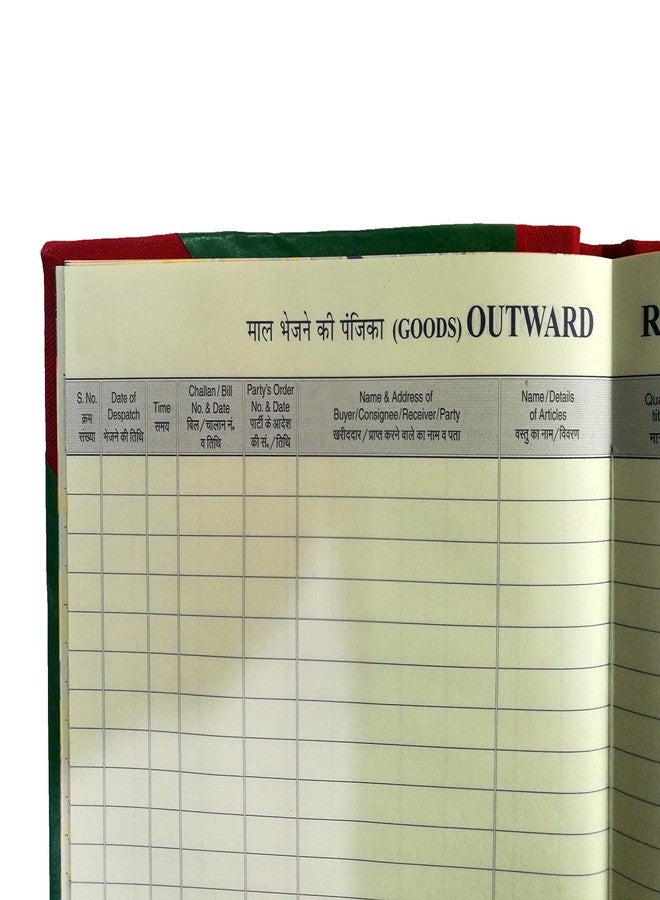 माल भेजने की पंजिका (GOODS) OUTWARD R
S. No.
क्रम
संख्या
Date of
Despatch
भेजने की तिथि
Time
समय
Challan / Bill
No. & Date
बिल/चालान नं.
व तिथि
Party's Order
No. & Date
पार्टी के आदेश
की सं./तिथि
Name & Address of
Buyer/Consignee/Receiver/Party
खरीददार/प्राप्त करने वाले का नाम व पता
Name/Details
of Articles
वस्तु का नाम/विवरण
Qua
tit
मा